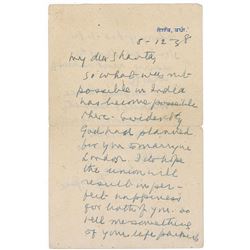 सेगाँव, वर्धा.
8-12-38
My dear Shanta,
So what was not
possible in India
has become possible
there. Evidently
God had planned
for you to marry in
London. I do hope
the union will
result in per-
fect happiness
for both of you. Do
tell me something
of your life partner